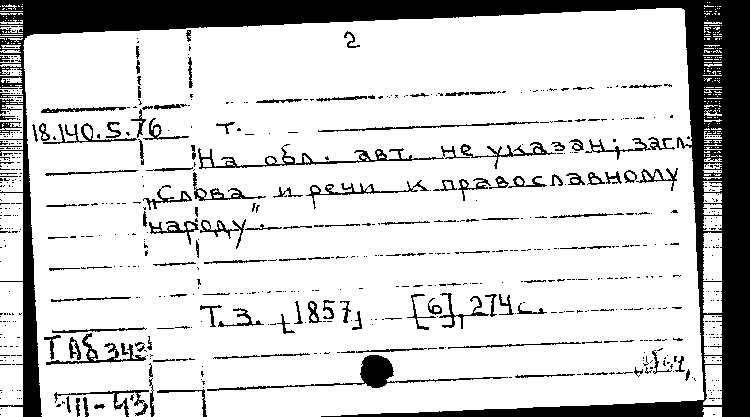 2
18.140.5.76 т.
На обл. авт. не указан; загл.:
„Слова и речи к православному
народу".
Т. 3. [1857] [6], 274 с.
I Аб 343
VIII-43